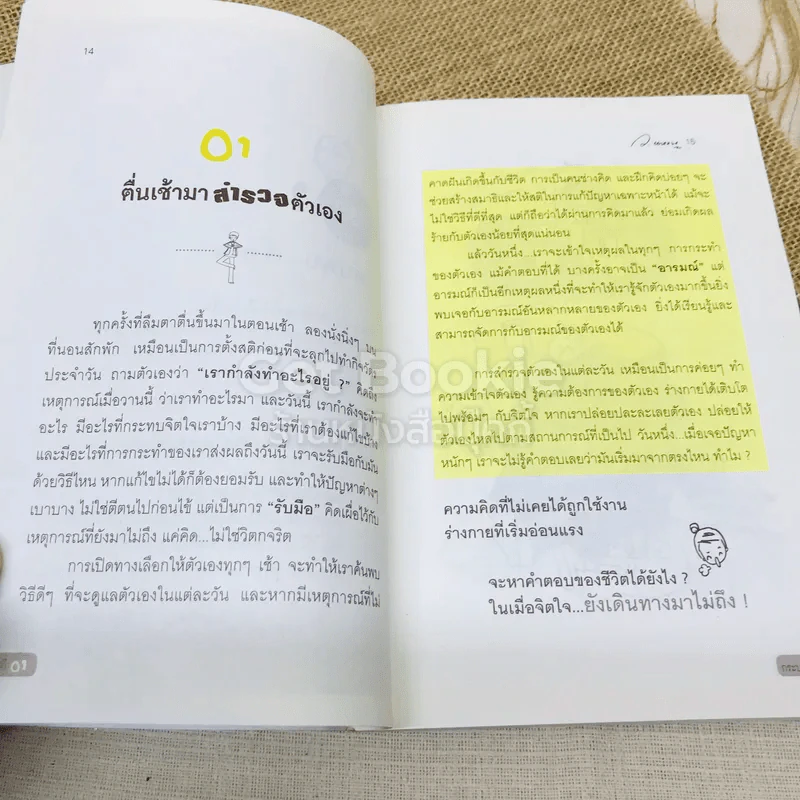 14
01
ตื่นเช้ามาสำรวจตัวเอง
ทุกครั้งที่ลืมตาตื่นขึ้นมาในตอนเช้า ลองนั่งนิ่งๆ บน
ที่นอนสักพัก เหมือนเป็นการตั้งสติก่อนที่จะลุกไปทำกิจวัตร
ประจำวัน ถามตัวเองว่า “เรากำลังทำอะไรอยู่ ?” คิดถึง
เหตุการณ์เมื่อวานนี้ ว่าเราทำอะไรมา และวันนี้ เรากำลังจะทำ
อะไร มีอะไรที่กระทบจิตใจเราบ้าง มีอะไรที่เราต้องแก้ไขบ้าง
และมีอะไรที่การกระทำของเราส่งผลถึงวันนี้ เราจะรับมือกับมัน
ด้วยวิธีไหน หากแก้ไขไม่ได้ก็ต้องยอมรับ และทำให้ปัญหาต่างๆ
เบาบาง ไม่ใช่ตีตนไปก่อนไข้ แต่เป็นการ “รับมือ” คิดเผื่อไว้กับ
เหตุการณ์ที่ยังมาไม่ถึง แค่คิด...ไม่ใช่วิตกจริต
การเปิดทางเลือกให้ตัวเองทุกๆ เช้า จะทำให้เราค้นพบ
วิธีดีๆ ที่จะดูแลตัวเองในแต่ละวัน และหากมีเหตุการณ์ที่ไม่
01
15
คาดฝันเกิดขึ้นกับชีวิต การเป็นคนช่างคิด และฝึกคิดบ่อยๆ จะ
ช่วยสร้างสมาธิและให้สติในการแก้ปัญหาเฉพาะหน้าได้ แม้จะ
ไม่ใช่วิธีที่ดีที่สุด แต่ก็ถือว่าได้ผ่านการคิดมาแล้ว ย่อมเกิดผล
ร้ายกับตัวเองน้อยที่สุดแน่นอน
แล้ววันหนึ่ง...เราจะเข้าใจเหตุผลในทุกๆ การกระทำ
ของตัวเอง แม้คำตอบที่ได้ บางครั้งอาจเป็น “อารมณ์” แต่
อารมณ์ก็เป็นอีกเหตุผลหนึ่งที่จะทำให้เรารู้จักตัวเองมากขึ้นยิ่ง
พบเจอกับอารมณ์อันหลากหลายของตัวเอง ยิ่งได้เรียนรู้และ
สามารถจัดการกับอารมณ์ของตัวเองได้
การสำรวจตัวเองในแต่ละวัน เหมือนเป็นการค่อยๆ ทำ
ความเข้าใจตัวเอง รู้ความต้องการของตัวเอง ร่างกายได้เติบโต
ไปพร้อมๆ กับจิตใจ หากเราปล่อยปละละเลยตัวเอง ปล่อยให้
ตัวเองไหลไปตามสถานการณ์ที่เป็นไป วันหนึ่ง...เมื่อเจอปัญหา
หนักๆ เราจะไม่รู้คำตอบเลยว่ามันเริ่มมาจากตรงไหน ทำไม ?
ความคิดที่ไม่เคยได้ถูกใช้งาน
ร่างกายที่เริ่มอ่อนแรง
จะหาคำตอบของชีวิตได้ยังไง ?
ในเมื่อจิตใจ...ยังเดินทางมาไม่ถึง !
Get Bookie